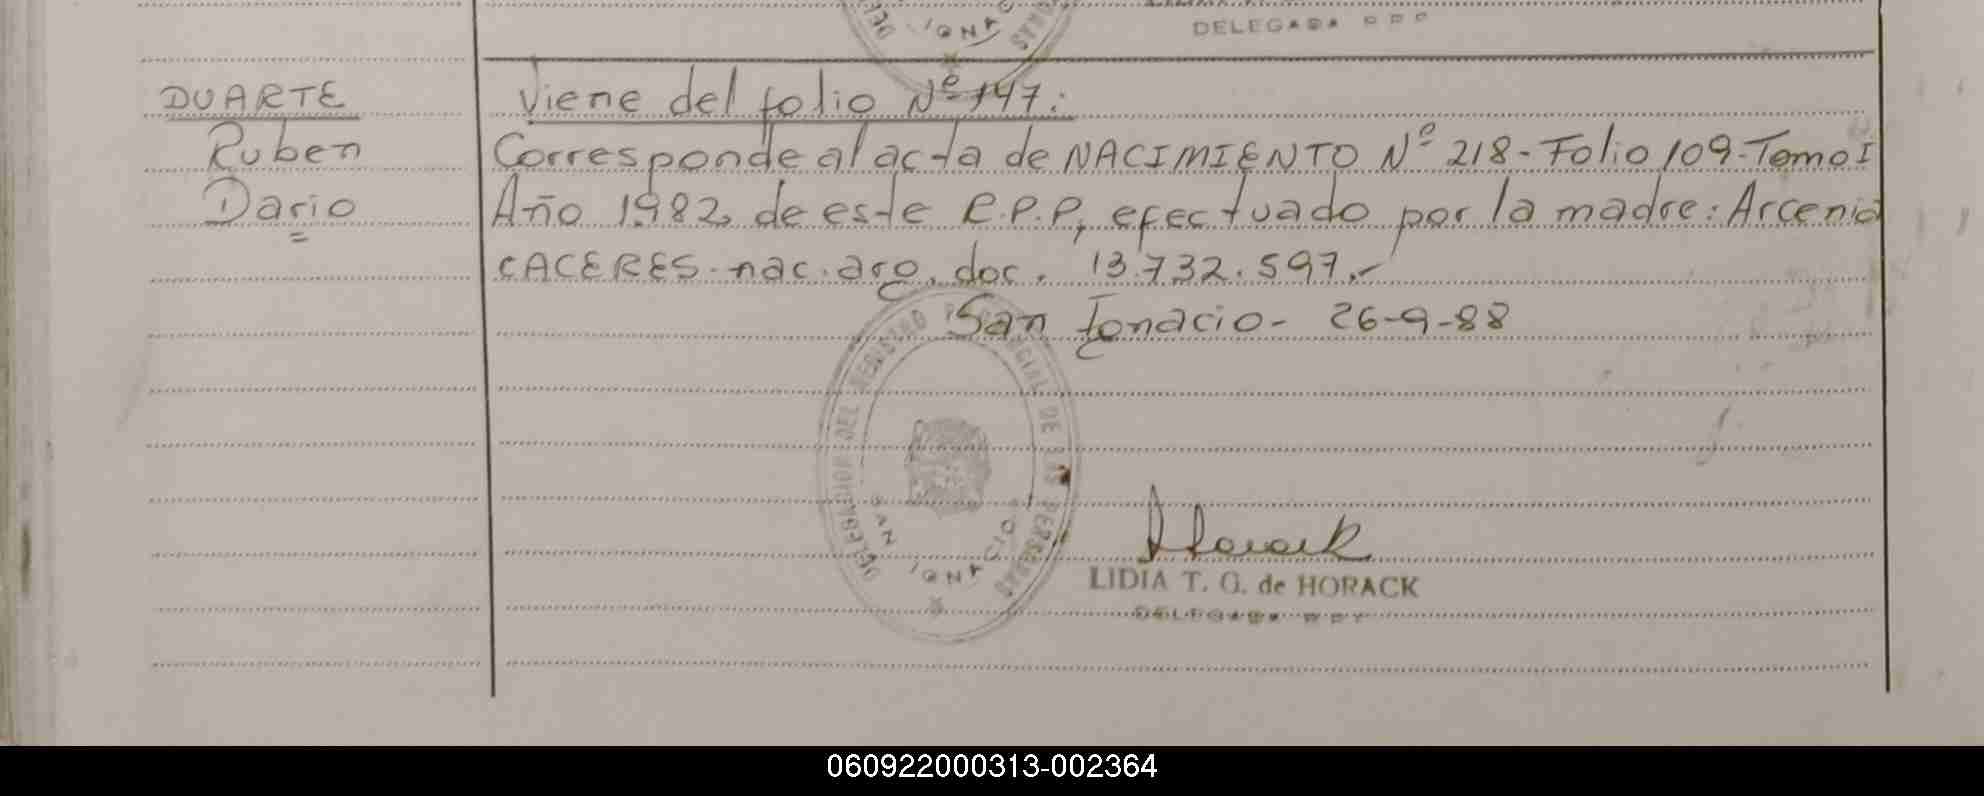 DELEGADA RPP
DUARTE
Ruben
Dario
Viene del folio Nº 147:
Corresponde al acta de NACIMIENTO Nº 218-Folio 109-Tomo I
Año 1982, de este R.P.P, efectuado por la madre: Arcenia
CACERES. nac. arg. doc. 13.732.597.-
San Ignacio- 26-9-88
DELEGACION DEL REGISTRO DE LAS PERSONAS
SAN IGNACIO
Horack
LIDIA T. G. de HORACK
DELEGADA RPP
060922000313-002364